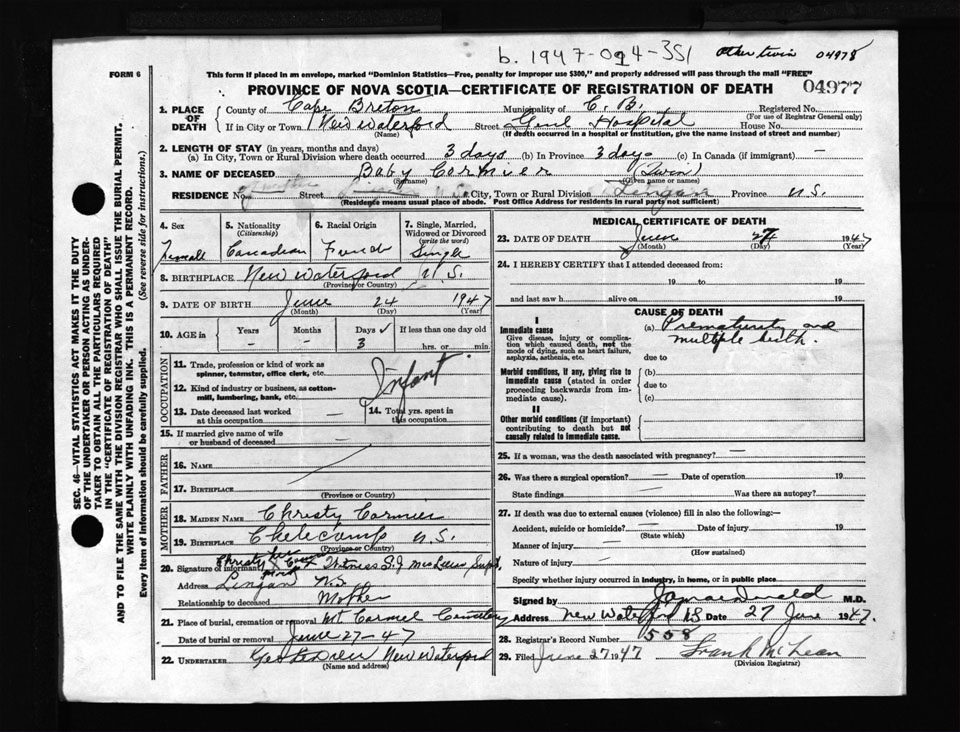 b. 1947-024-351 Other twin 04978
FORM 6
This form if placed in an envelope, marked "Dominion Statistics—Free, penalty for improper use $300," and properly addressed will pass through the mail "FREE"
PROVINCE OF NOVA SCOTIA—CERTIFICATE OF REGISTRATION OF DEATH 04977
1. PLACE OF DEATH County of Cape Breton Municipality of C. B. Registered No.
(For use of Registrar General only)
If in City or Town New Waterford Street Genl Hospital House No.
(Name) (If death occurred in a hospital or institution, give the name instead of street and number)
2. LENGTH OF STAY (in years, months and days)
(a) In City, Town or Rural Division where death occurred 3 days (b) In Province 3 days (c) In Canada (if immigrant) —
3. NAME OF DECEASED Baby Cormier (Twin)
(Surname) (Given name or names)
RESIDENCE No. Street City, Town or Rural Division Lingan Province N.S.
(Residence means usual place of abode. Post Office Address for residents in rural parts not sufficient)
4. Sex Female
5. Nationality (Citizenship) Canadian
6. Racial Origin French
7. Single, Married, Widowed or Divorced (write the word) Single
8. BIRTHPLACE New Waterford N.S.
(Province or Country)
9. DATE OF BIRTH June 24 1947
(Month) (Day) (Year)
10. AGE in Years Months Days If less than one day old
— — 3 hrs. or min.
OCCUPATION
11. Trade, profession or kind of work as spinner, teamster, office clerk, etc. Infant
12. Kind of industry or business, as cotton-mill, lumbering, bank, etc.
13. Date deceased last worked at this occupation —
14. Total yrs. spent in this occupation
15. If married give name of wife or husband of deceased —
FATHER
16. NAME
17. BIRTHPLACE
(Province or Country)
MOTHER
18. MAIDEN NAME Christy Cormier
19. BIRTHPLACE Chelecamp N.S.
(Province or Country)
20. Signature of informant Christy her X mark Cormier Witness S.J. McLean Supt.
Address Lingan N.S
Relationship to deceased Mother
21. Place of burial, cremation or removal Mt Carmel Cemetery
Date of burial or removal June 27-47
22. UNDERTAKER New Waterford
(Name and address)
MEDICAL CERTIFICATE OF DEATH
23. DATE OF DEATH June 27 1947
(Month) (Day) (Year)
24. I HEREBY CERTIFY that I attended deceased from:
19 to 19
and last saw h alive on 19
CAUSE OF DEATH
I
Immediate cause (a) Prematurity and multiple birth.
Give disease, injury or complication which caused death, not the mode of dying, such as heart failure, asphyxia, asthenia, etc.
due to
Morbid conditions, if any, giving rise to immediate cause (stated in order proceeding backwards from immediate cause). (b)
due to
(c)
II
Other morbid conditions (if important) contributing to death but not causally related to immediate cause.
25. If a woman, was the death associated with pregnancy? —
26. Was there a surgical operation? — Date of operation 19
State findings — Was there an autopsy?
27. If death was due to external causes (violence) fill in also the following:—
Accident, suicide or homicide? — Date of injury 19
(State which)
Manner of injury —
(How sustained)
Nature of injury —
Specify whether injury occurred in industry, in home, or in public place
Signed by M.D.
Address New Waterford NS Date 27 June 1947
28. Registrar's Record Number 558
29. Filed June 27 1947 Frank McLean
(Division Registrar)
SEC. 46—VITAL STATISTICS ACT MAKES IT THE DUTY
OF THE UNDERTAKER OR PERSON ACTING AS UNDER-
TAKER TO OBTAIN ALL THE PARTICULARS REQUIRED
IN THE "CERTIFICATE OF REGISTRATION OF DEATH"
AND TO FILE THE SAME WITH THE DIVISION REGISTRAR WHO SHALL ISSUE THE BURIAL PERMIT.
WRITE PLAINLY WITH UNFADING INK. THIS IS A PERMANENT RECORD.
Every item of information should be carefully supplied. (See reverse side for instructions.)